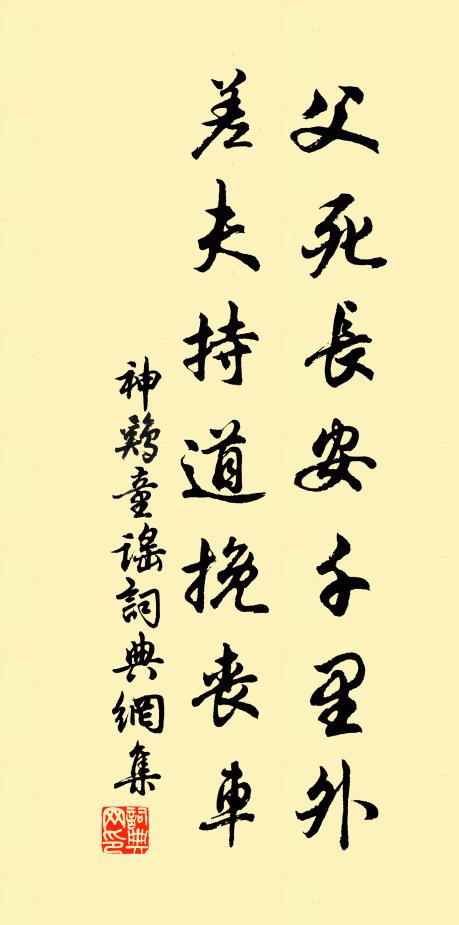 父死長安千里外
差夫持道挽喪車
神鷄童謠詞典網集
詞典網印